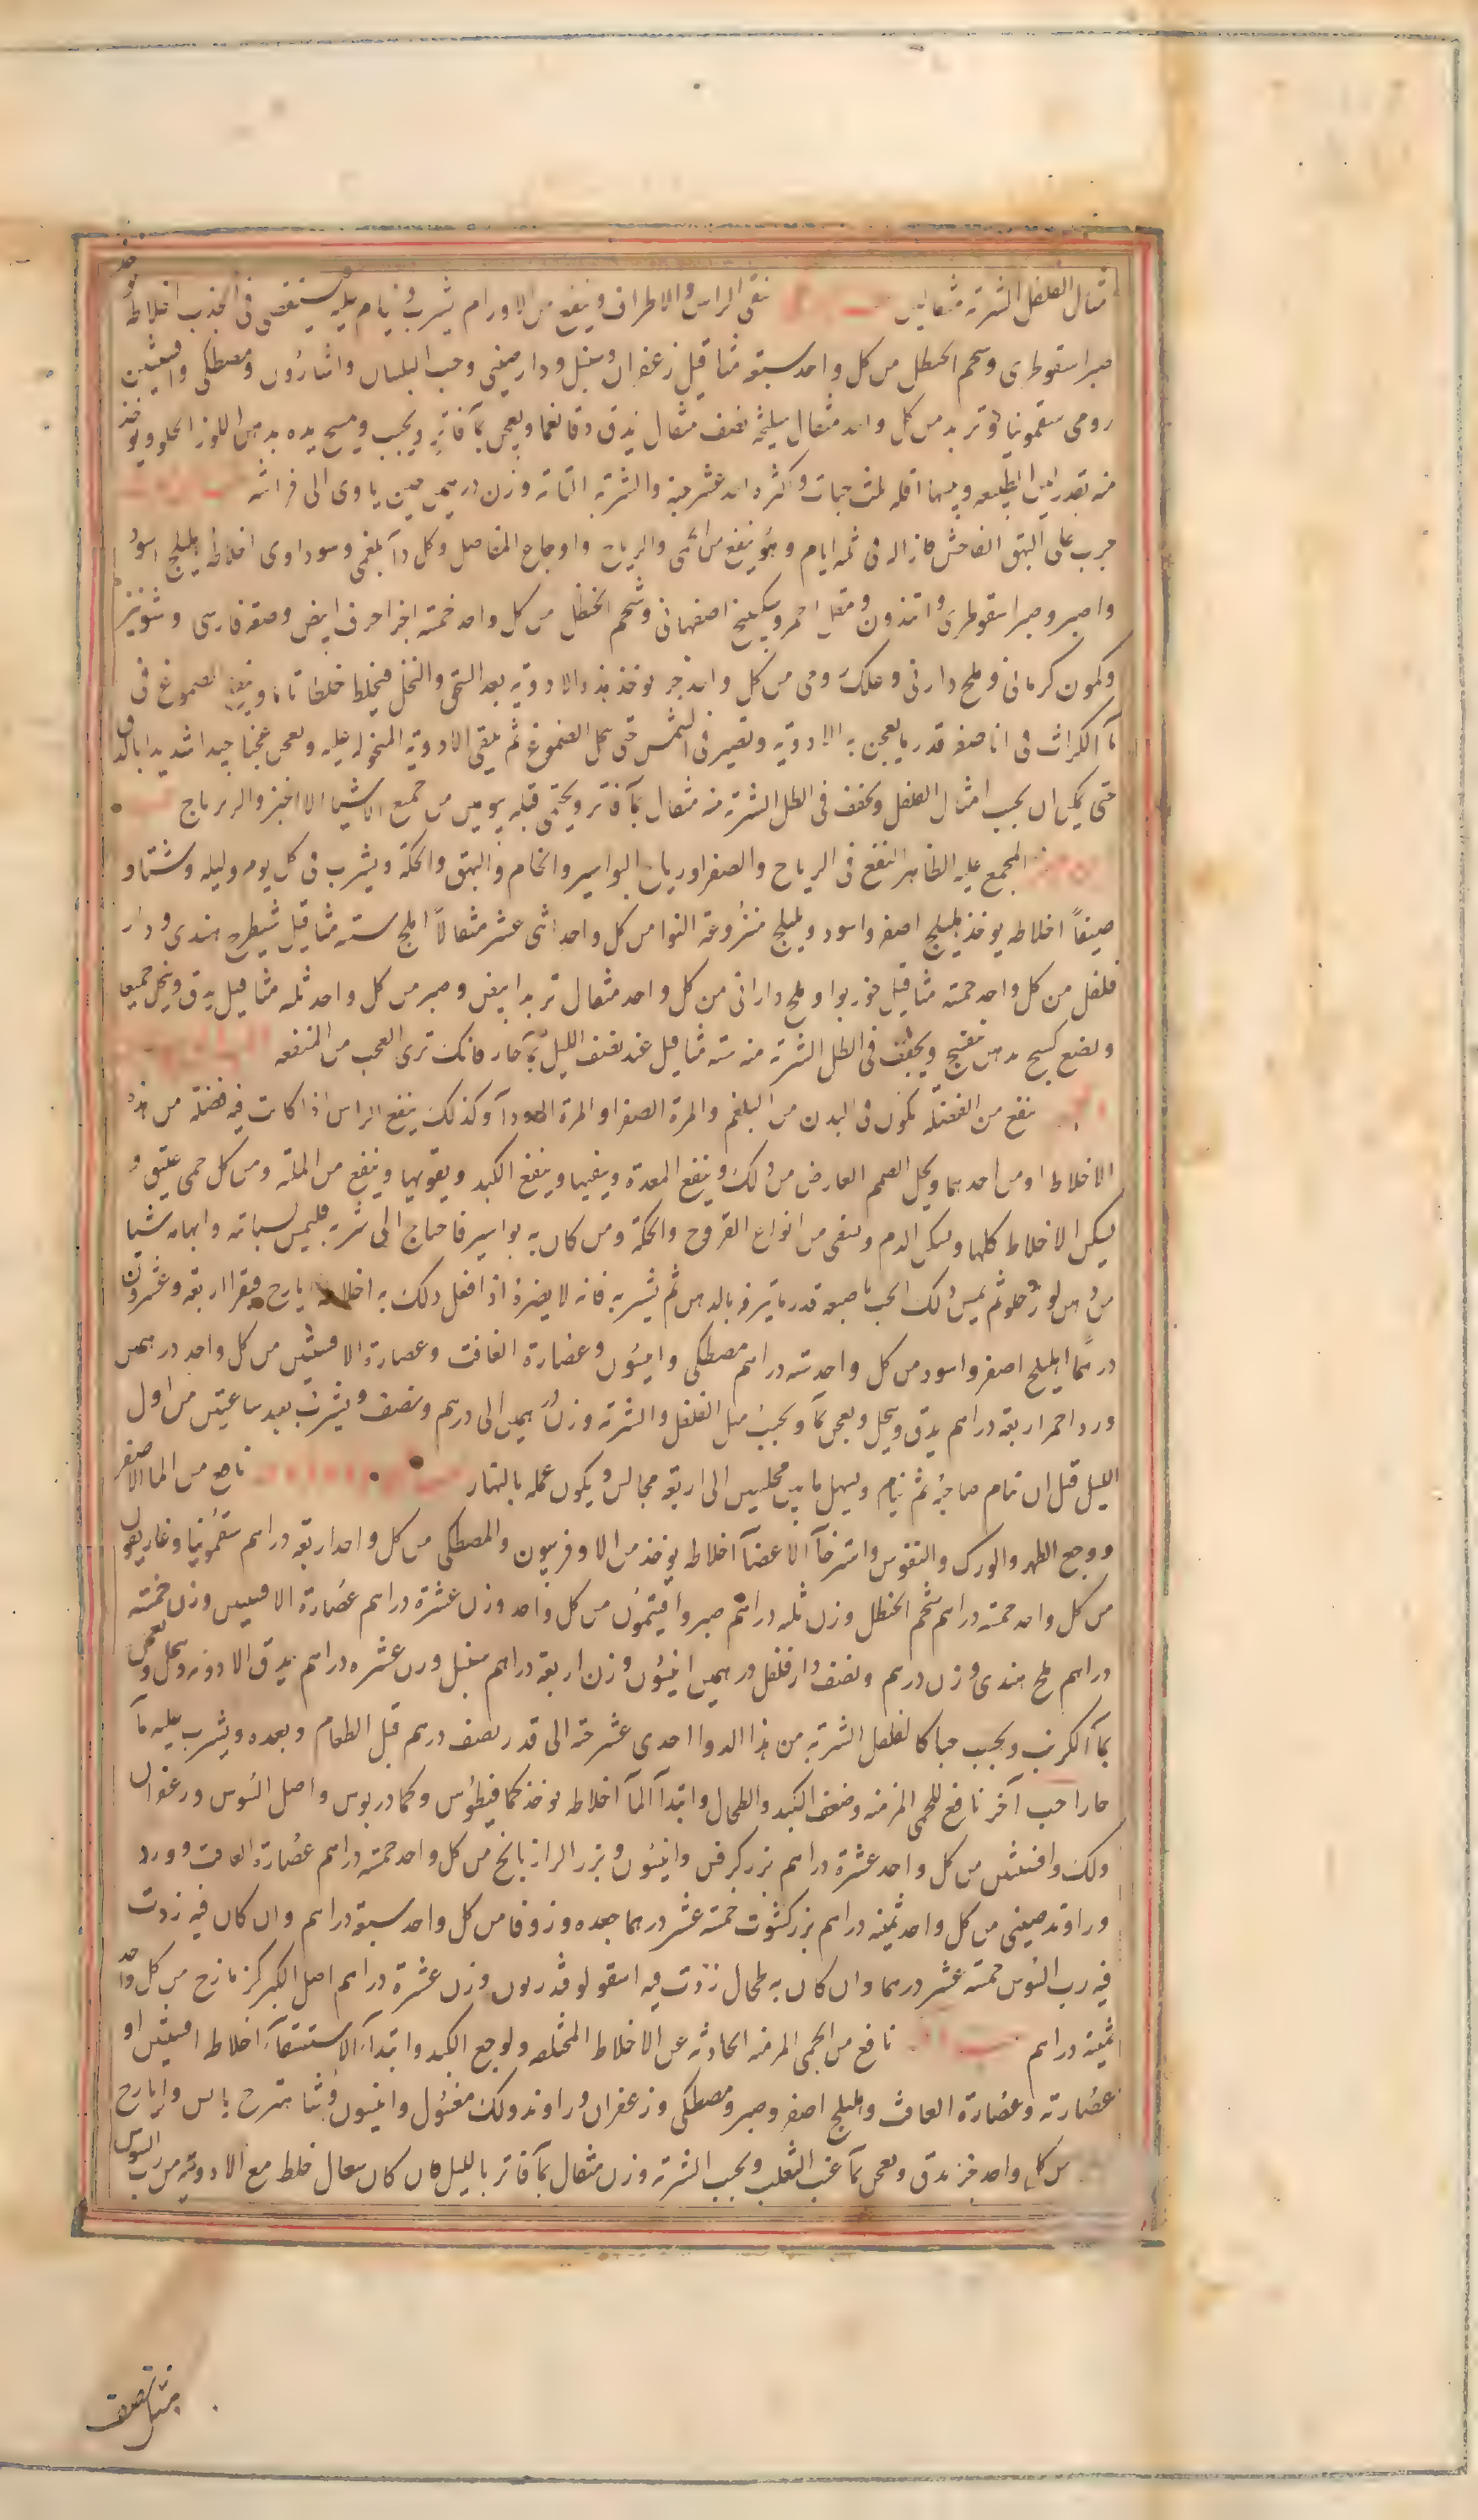 مثال الفلفل الشربة مثقالين ينقى الراس والاطراف وينفع من الاورام يشرب وينام عليه يستقصى فى الجذب اخلاطه يوخذ
صبر اسقوطرى وشحم الحنظل من كل واحد سبتة مثاقيل زعفران وسنبل ودارصينى وحب البلسان واسارون ومصطكى وافسنتين
رومى سقمونيا وتربد من كل واحد مثقال سليخه نصف مثقال يدق دقا نعما ويعجن بمآ فاتر ويحبب ويمسح يده بدهن اللوز الحلو ويوخذ
منه بقدر لين الطبيعه ويبسها اقله ثلث حبات واكثره احد عشر حبة والشربة التامة وزن درهمين حين ياوى الى فراشه
جرب على البهق الفاحش فازاله فى ثلثه ايام وهو ينفع من الحمى والرياح واوجاع المفاصل وكل دآ بلغمى وسوداوى اخلاطه اهليلج اسود
واصبر وصبر اسقوطرى وانذرون ومقل احمر وسكبينج اصفهانى وشحم الحنظل من كل واحد خمسة اجزا حرف ابيض وصعتر فارسى وشونيز
وكمون كرمانى وملح دارنى وعلك رومى من كل واحد جز يوخذ هذه الادوية بعد السحق والنخل فيخلط خلطا تاما وينقع الصموغ فى
مآ الكراث فى انا صفر قدر ما يعجن به الادوية وتصير فى الشمس حتى يحل الصموغ ثم يلقى الادوية المنخوله عليه ويعجن عجنا جيدا شديدا بالدق
حتى يمكن ان يحبب امثال الفلفل ويجفف فى الظل الشربة منه مثقال بمآ فاتر ويحتمى قبله يومين من جميع الاشيا الا الخبز والزيرباج
المجمع عليه الظاهر النفع فى الرياح والصفرا ورياح البواسير والخام والبهق والحكة ويشرب فى كل يوم وليله وشتاو
صيفاً اخلاطه يوخذ هليلج اصفر واسود وبليلج منزوعة النوا من كل واحد اثنى عشر مثقالاً املج سته مثاقيل شيطرج هندى ودار
فلفل من كل واحد خمسة مثاقيل جوزبوا وملح دارانى من كل واحد مثقال تربد ابيض وصبر من كل واحد ثلثه مثاقيل يدق وينخل جميعا
ويضع كسيح بدهن بنفسج ويجفف فى الظل الشربة منه سته مثاقيل عند نصف الليل بمآ حار فانك ترى العجب من المنفعه
ينفع من الفضله تكون فى البدن من البلغم والمرة الصفرا والمرة السودآ وكذلك ينفع الراس اذا كانت فيه فضلة من هذه
الاخلاط او من احدهما ويحل الصمم العارض من ذلك وينفع المعدة وينقيها وينفع الكبد ويقويها وينفع من الملة ومن كل حمى عتيق و
يسكن الاخلاط كلها ويسكن الدم وينقى من انواع القروح والحكة ومن كان به بواسير فاحتاج الى شربه فليمس سبابته وابهامه شيا
من دهن لوز حلو ثم يمس ذلك الحب باصبعه قدر ما يترفه بالدهن ثم يشربه فانه لا يضره اذا فعل ذلك به اخلاطه ايارج فيقرا اربعة وعشرون
درهما اهليلج اصفر واسود من كل واحد سته دراهم مصطكى وانيسون وعصارة الغافت وعصارة الافسنتين من كل واحد درهمين
ورد احمر اربعة دراهم يدق وينخل ويعجن بمآ ويحبب مثل الفلفل والشربة وزن درهمين الى درهم ونصف ويشرب بعد ساعتين من اول
الليل قبل ان تنام صاحبه ثم ينام ويسهل ما بين مجلسين الى اربعة مجالس ويكون عمله بالنهار نافع من الما الاصفر
ووجع الظهر والورك والنقوس واسترخآ الاعضآ اخلاطه يوخذ من الاوفربيون والمصطكى من كل واحد اربعة دراهم سقمونيا وغاريقون
من كل واحد خمسة دراهم شحم الحنظل وزن ثلثه دراهم صبر وافيثمون من كل واحد وزن عشرة دراهم عصارة الافسنتين وزن خمسة
دراهم ملح هندى وزن درهم ونصف دارفلفل درهمين انيسون وزن اربعة دراهم سنبل وزن عشره دراهم يدق الادويه وينخل ويعجن
بمآ الكرنب ويحبب حبا كالفلفل الشربة من هذا الدوا احدى عشر حبه الى قدر نصف درهم قبل الطعام وبعده ويشرب عليه مآ
حارا حب آخر نافع للحمى المزمنه وضعف الكبد والطحال وابتدآ المآ اخلاطه يوخذ كمافيطوس وكمادريوس واصل السوس وزعفران
ولك وافسنتين من كل واحد عشرة دراهم بزر كرفس وانيسون وبزر الرازيانج من كل واحد خمسة دراهم عصارة الغافت وورد
وراوند صينى من كل واحد ثمينه دراهم بزر كشوت خمسة عشر درهما جعده وزوفا من كل واحد سبعة دراهم وان كان فيه زدت
فيه رب السوس خمسة عشر درهما وان كان به طحال زدت فيه اسقولوقندريون وزن عشرة دراهم اصل الكبر كزمازج من كل واحد
ثمينة دراهم نافع من الحمى المزمنه الحادثه عن الاخلاط المختلفه ولوجع الكبد وابتدآء الاستسقآء اخلاطه افسنتين او
عصارته وعصارة الغافت واهليلج اصفر وصبر ومصطكى وزعفران وراوند ولك مغسول وانيسون وشاهترج يابس وايارج
من كل واحد جز يدق ويعجن بمآ عنب الثعلب ويحبب الشربة وزن مثقال بمآ فاتر بالليل فان كان سعال خلط مع الادوية من رب السوس
مثل نصف